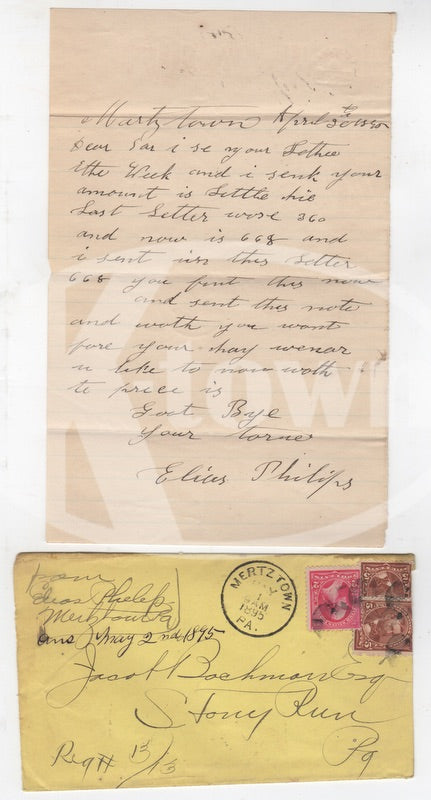 Martztown April 30th 1895
Dear Sar i se your Lettee
the Week and i senk your
amount is Settle hie
Last Letter wose 360
and now is 668 and
i sent inn this Letter
668 you fint this now
and sent this note
and woth you wont
fore your hay
u like to now woth
te price is
Goot Bye
Your
Elias Philips
from
Elias Phelips
Mertztown Pa
ans May 2nd 1895
MERTZTOWN
MAY
1
AM
1895
PA.
Jacob Bachman Esq
Stony Run
Pa
Reg #
Ktown